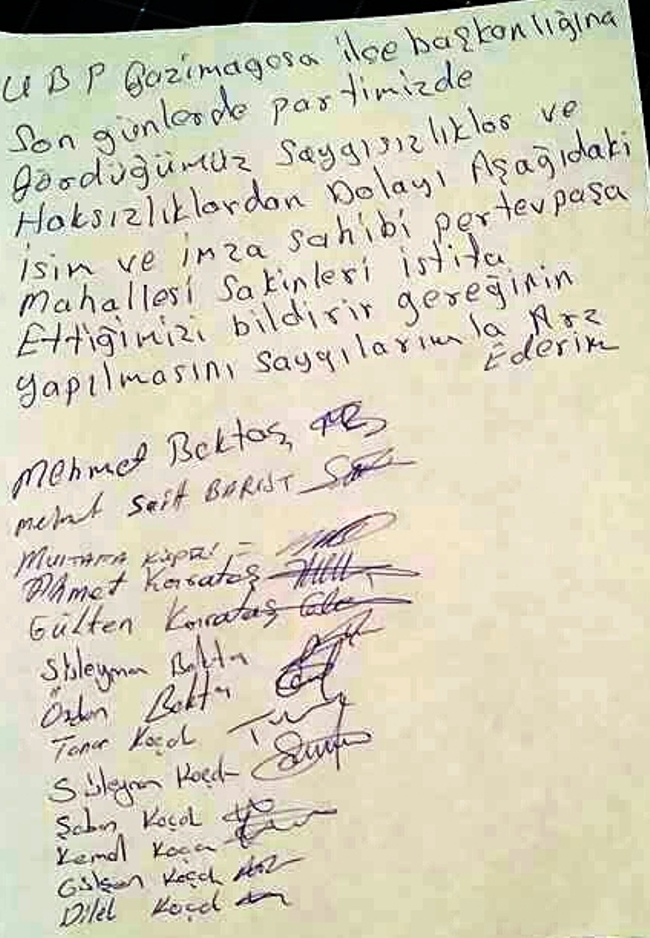 UBP Gazimagosa ilçe başkanlığına
Son günlerde partimizde
Gördüğümüz Saygısızlıklar ve
Haksızlıklardan Dolayı Aşağıdaki
isim ve imza sahibi pertevpaşa
Mahallesi Sakinleri istifa
Ettiğimizi bildirir gereğinin
yapılmasını saygılarımla Arz
Ederim
Mehmet Bektaş
Mehmet Sait BARIST
MUSTAFA
Ahmet Karataş
Gülten Karataş
Süleyman Bekta
Özlem Bekta
Taner Koçak
Süleyman Koçak
Şaban Koçak
Kemal Koçak
Gülşen Koçak
Dilek Koçak